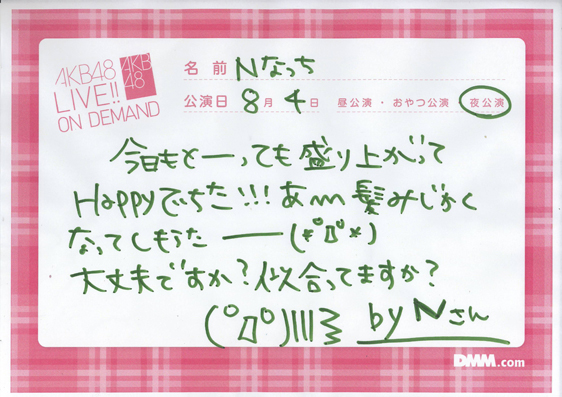 AKB48
LIVE!!
ON DEMAND
AKB
48
名前 Nなっち
公演日 8月4日 昼公演・おやつ公演 夜公演
今日もとーっても盛り上がって
Happyでちた!!!あ〜髪みじかく
なってしもうた ――(*゚Д゚*)
大丈夫ですか?似合ってますか?
(゚Д゚)|||ミ by Nさん
DMM.com